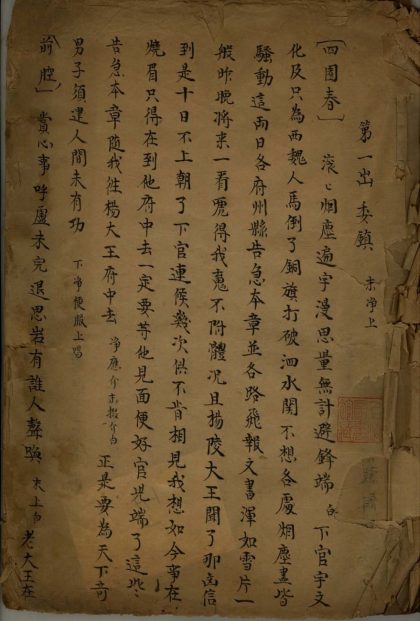 第一出 委鎮 末净上
〔四園春〕 滚〻烟塵遍宇漫思量無計避鋒端 白 下官宇文
化及只為西魏人馬倒了銅旗打破泗水関不想各處烟塵盡皆
騷動這両日各府州縣告急本章並各路飛報文書渾如雪片一
般昨晚將来一看唬得我魂不附體况且揚陵大王聞了那凶信
到是十日不上朝了下官連候幾次俱不肯相見我想如今事在
燒眉只得在到他府中去一定要等他見面便好官児端了這些
告急本章隨我徃楊大王府中去 净應介末 介白 正是要為天下竒
男子須建人間未有功 下净便服上唱
〔前腔〕 賞心事呼盧未完退思岩有誰人聲喚 末上白 老大王在